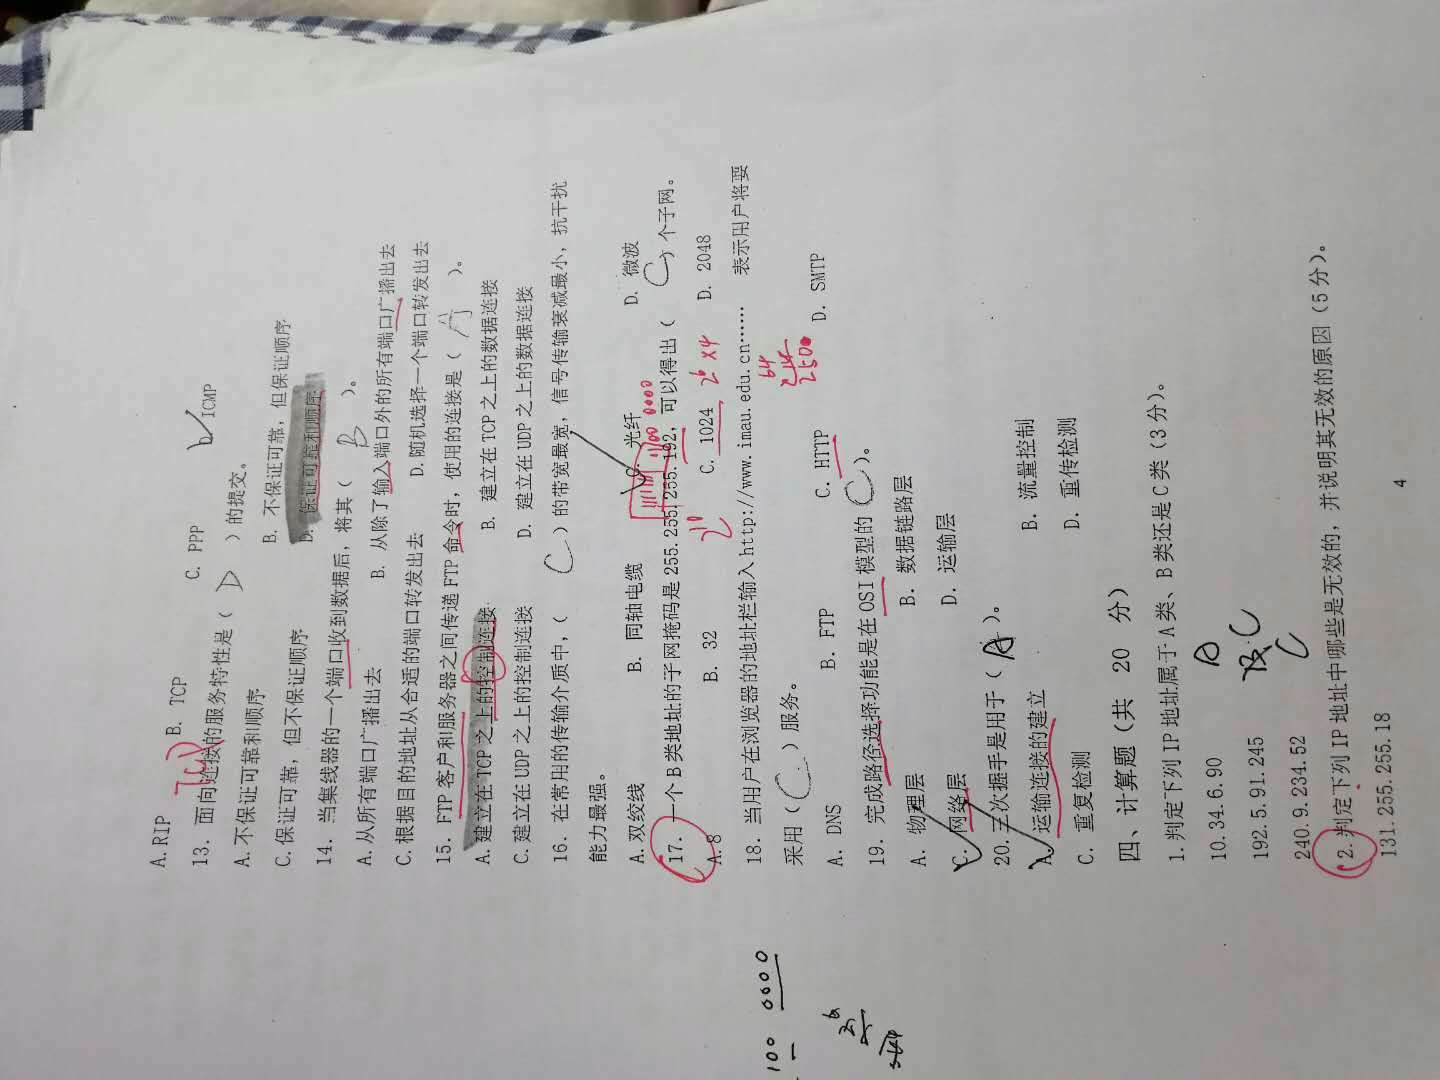 A.RIP B. TCP C. PPP D ICMP
TCP
13. 面向连接的服务特性是（ D ）的提交。
A.不保证可靠和顺序 B. 不保证可靠，但保证顺序
C.保证可靠，但不保证顺序 D. 保证可靠和顺序
14. 当集线器的一个端口收到数据后，将其（ B ）。
A.从所有端口广播出去 B. 从除了输入端口外的所有端口广播出去
C.根据目的地址从合适的端口转发出去 D.随机选择一个端口转发出去
15. FTP 客户和服务器之间传递 FTP 命令时，使用的连接是（ A ）。
A.建立在 TCP 之上的控制连接 B. 建立在 TCP 之上的数据连接
C.建立在 UDP 之上的控制连接 D. 建立在 UDP 之上的数据连接
16. 在常用的传输介质中，（ C ）的带宽最宽，信号传输衰减最小，抗干扰
能力最强。
A.双绞线 B. 同轴电缆 C. 光纤 D. 微波
1100 0000
17. 一个 B 类地址的子网掩码是 255.255.255.192，可以得出（ C ）个子网。
A.8 B. 32 2^10 C. 1024 2^6 ×4 D. 2048
18. 当用户在浏览器的地址栏输入 http://www.imau.edu.cn…… 表示用户将要
100 0000
64
250
采用（ C ）服务。
A. DNS B. FTP C. HTTP D. SMTP
19. 完成路径选择功能是在 OSI 模型的（ C ）。
A. 物理层 B. 数据链路层
C. 网络层 D. 运输层
20. 三次握手是用于（ A ）。
A. 运输连接的建立 B. 流量控制
C. 重复检测 D. 重传检测
四、计算题（共 20 分）
1.判定下列 IP 地址属于 A 类、B 类还是 C 类（3 分）。
10.34.6.90 A
192.5.91.245 C
240.9.234.52 C
2.判定下列 IP 地址中哪些是无效的，并说明其无效的原因（5 分）。
131.255.255.18
4